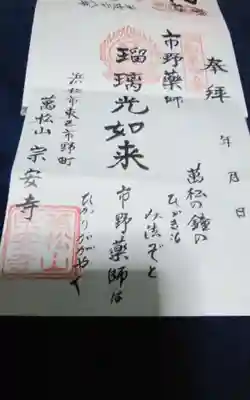 奉拝
年 月 日
市野薬師
瑠璃光如来
浜松市東区市野町
萬松山 宗安寺
萬松の鐘の
ひびきも
市野薬師は
ひかりかがやく